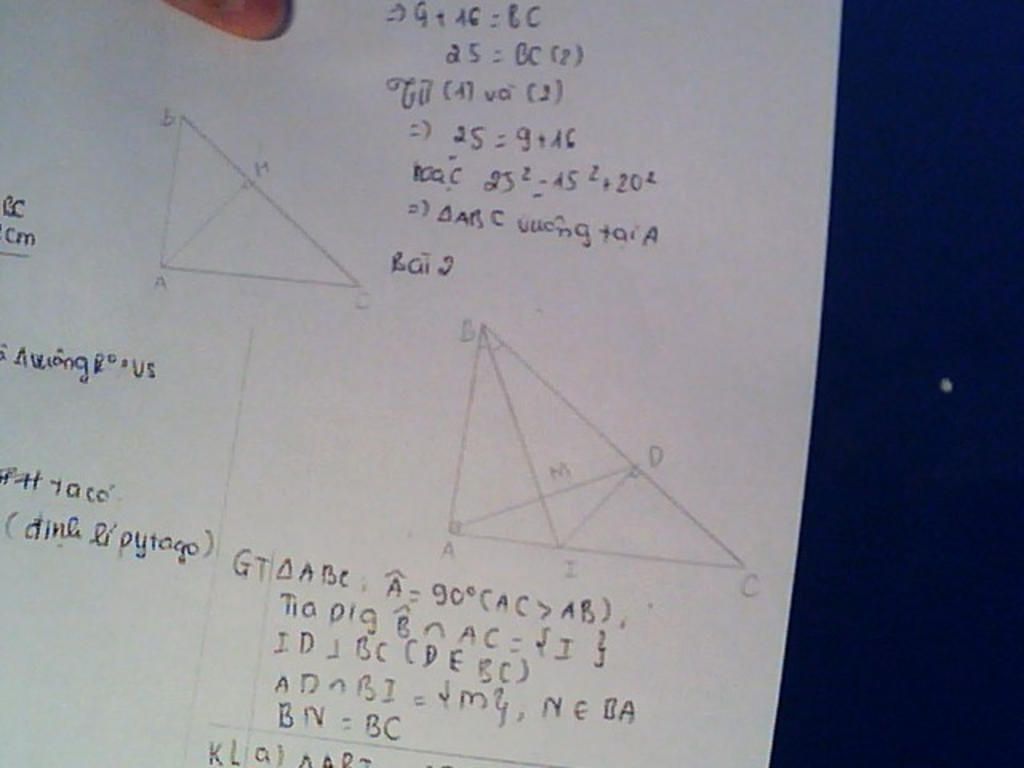 => 9+16 = BC
25 = BC (2)
Từ (1) và (2)
=> 25 = 9+16
hoặc 25² = 15² + 20²
=> ΔABC vuông tại A
Bài 2
B
H
A
C
BC
cm
Δvuông
ta có
(định lí pytago)
B
D
M
A
I
C
GT ΔABC, Â = 90° (AC > AB),
Tia p/g B̂ ∩ AC = {I}
ID ⊥ BC (D ∈ BC)
AD ∩ BI = {M}, N ∈ BA
BN = BC
KL a) ΔABI